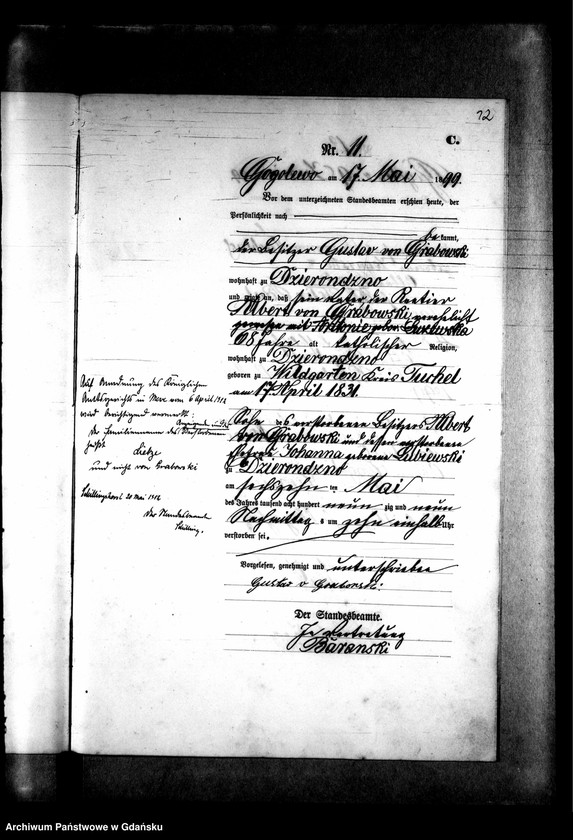 12
C.
Nr. 11.
Gogolewo am 17. Mai 1899.
Vor dem unterzeichneten Standesbeamten erschien heute, der
Persönlichkeit nach
bekannt,
der Besitzer Gustav von Grabowski
wohnhaft zu Dzierondzno
und zeigte an, daß sein Vater der Rentier
Albert von Grabowski, verehelicht
gewesen mit Antonie geb.
68 Jahre alt katholischer Religion,
wohnhaft zu Dzierondzno
geboren zu Wildgarten Kreis Tuchel
am 17 April 1831.
Sohn des verstorbenen Besitzers Albert
von Grabowski und dessen verstorbene
Ehefrau Johanna geborene Lubiewski
zu Dzierondzno
am sechszehn ten Mai
des Jahres tausend acht hundert neun zig und neun
Nachmittags um zehn einhalb Uhr
verstorben sei.
Vorgelesen, genehmigt und unterschrieben
Gustav v Grabowski.
Der Standesbeamte.
In Vertretung
Baranski
Auf Anordnung des Königlichen
Amtsgerichts in Mewe vom 6 April 1912
wird berichtigend vermerkt:
der Familienname des Verstorbenen
und nicht von Grabowski
20 Mai 1912
Der Standesbeamte
Archiwum Państwowe w Gdańsku